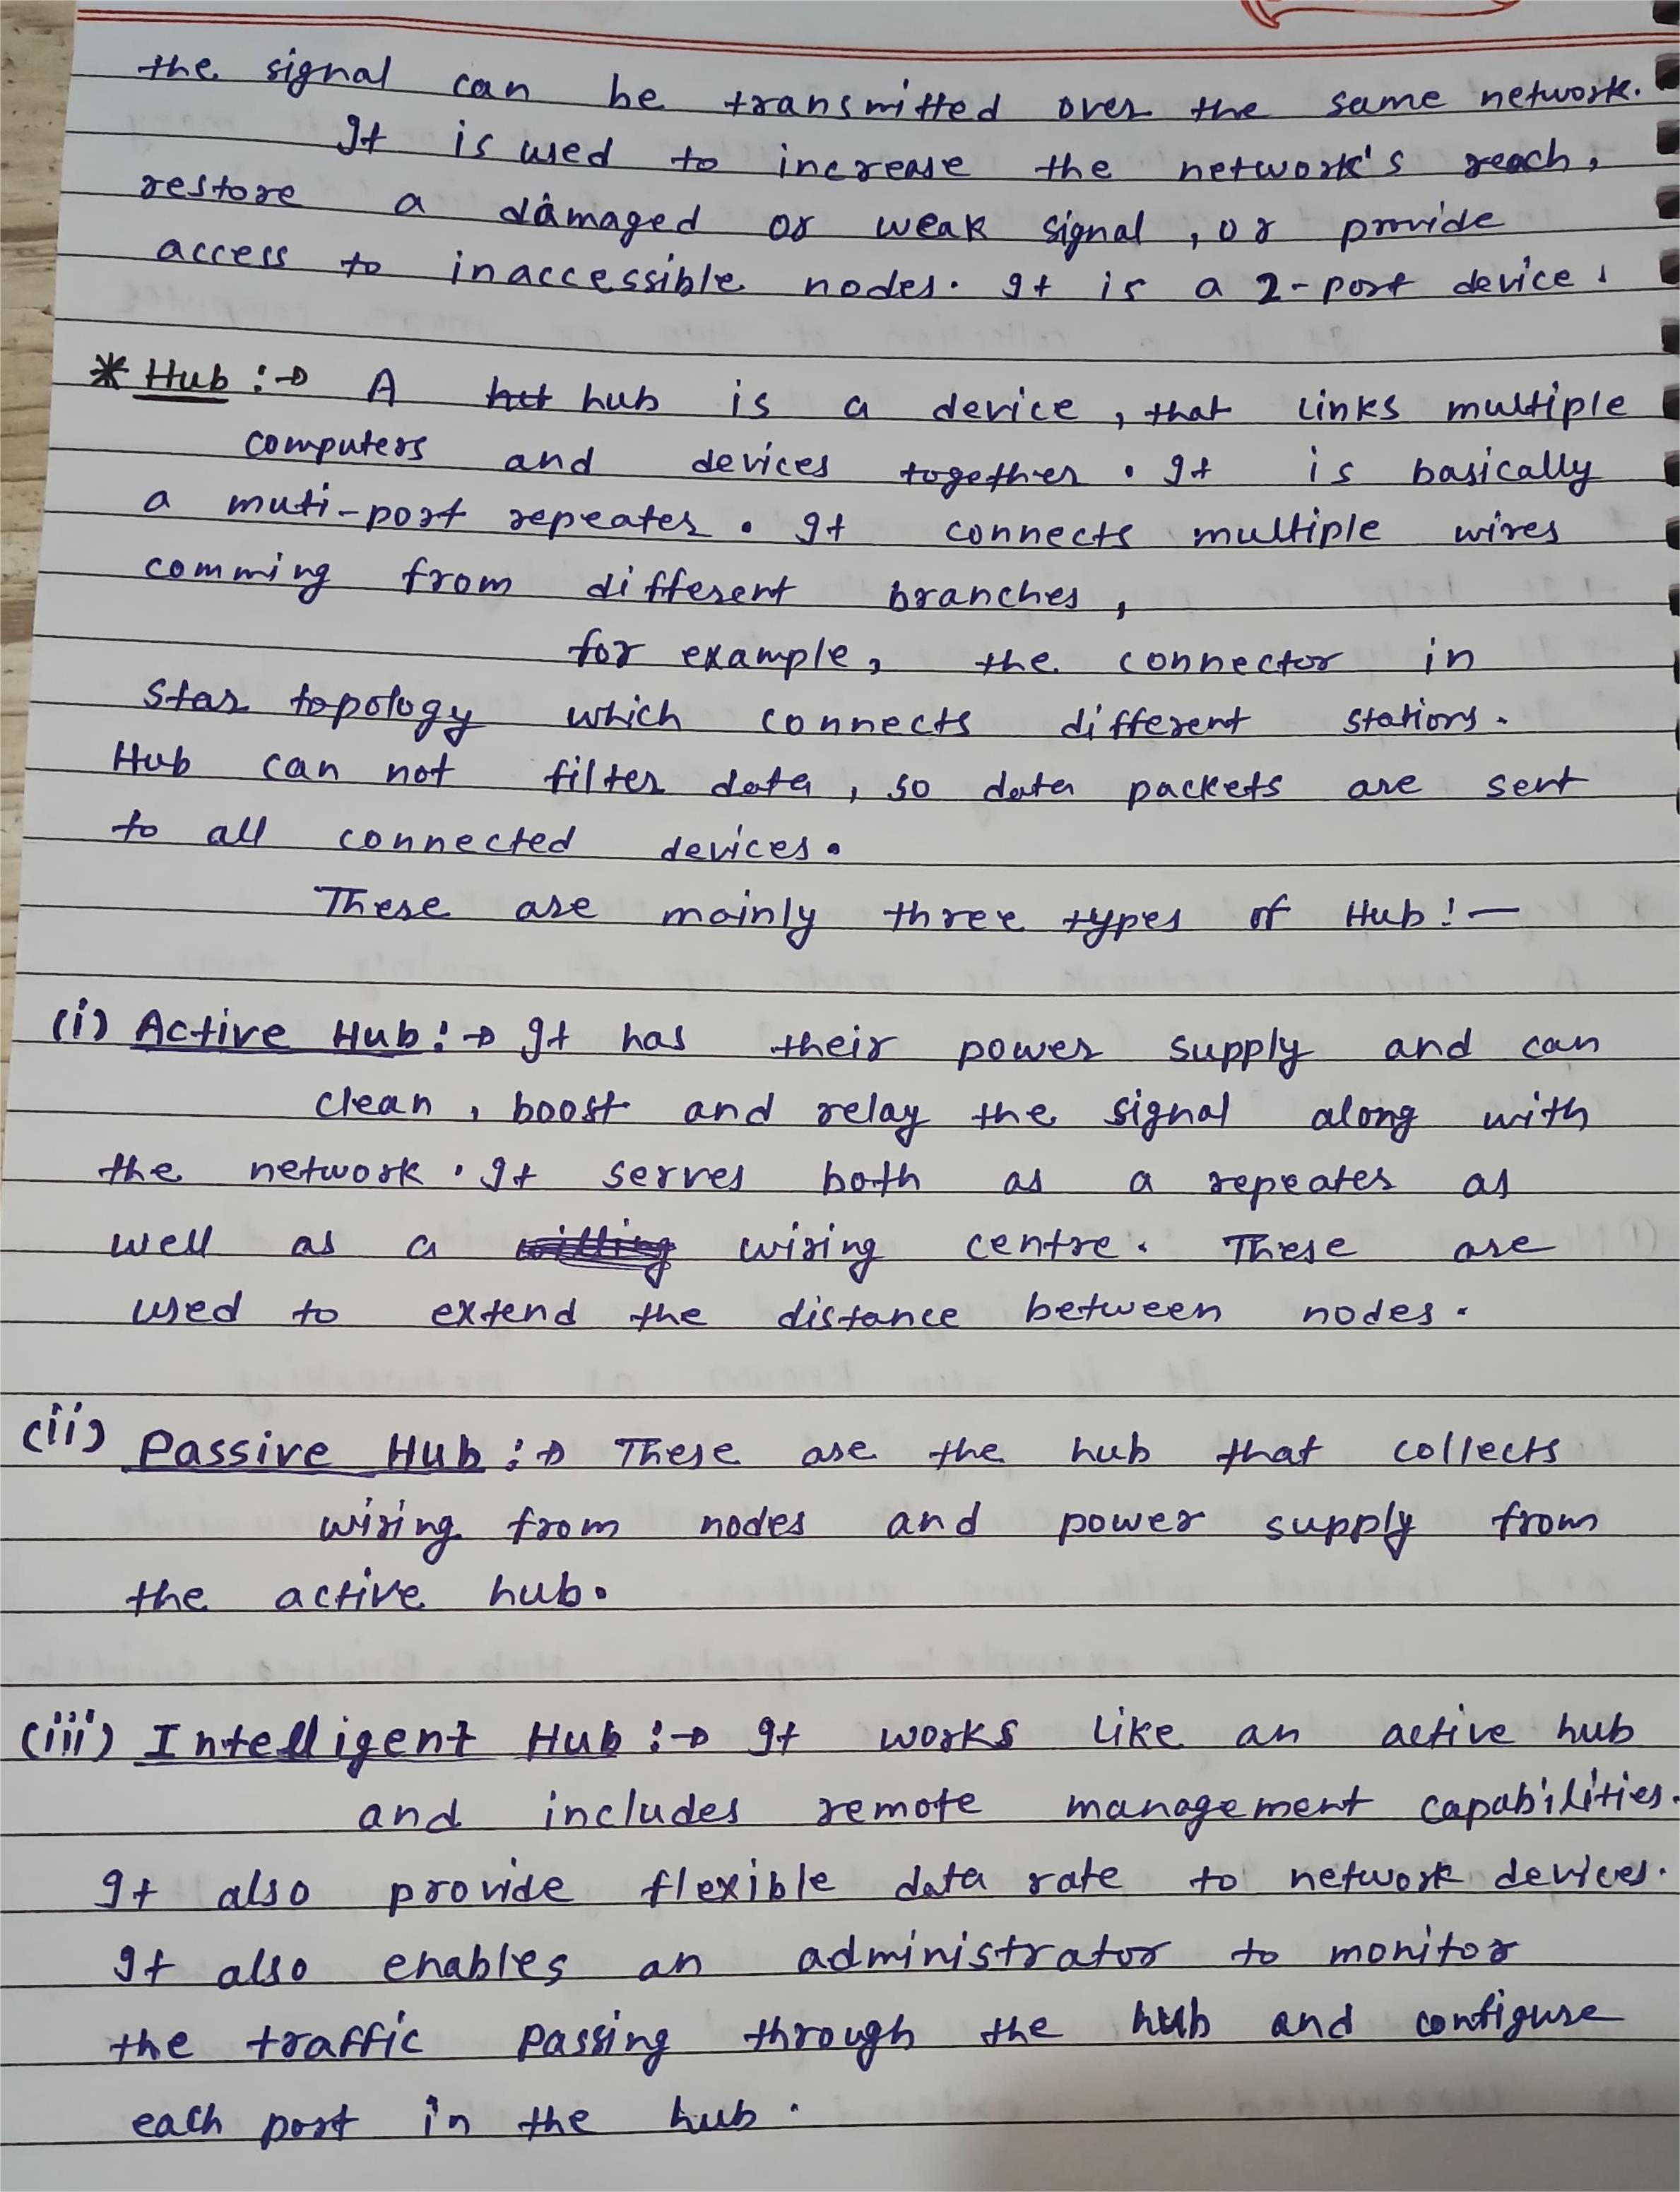 the signal can be transmitted over the same network.
It is used to increase the network's reach,
restore a damaged or weak signal, or provide
access to inaccessible nodes. It is a 2-port device.
* Hub :→ A hub is a device, that links multiple
computers and devices together. It is basically
a muti-port repeater. It connects multiple wires
comming from different branches,
for example, the connector in
star topology which connects different stations.
Hub can not filter data, so data packets are sent
to all connected devices.
These are mainly three types of Hub:—
(i) Active Hub:→ It has their power supply and can
clean, boost and relay the signal along with
the network. It serves both as a repeater as
well as a wiring centre. These are
used to extend the distance between nodes.
(ii) Passive Hub:→ These are the hub that collects
wiring from nodes and power supply from
the active hub.
(iii) Intelligent Hub:→ It works like an active hub
and includes remote management capabilities.
It also provide flexible data rate to network devices.
It also enables an administrator to monitor
the traffic passing through the hub and configure
each port in the hub.